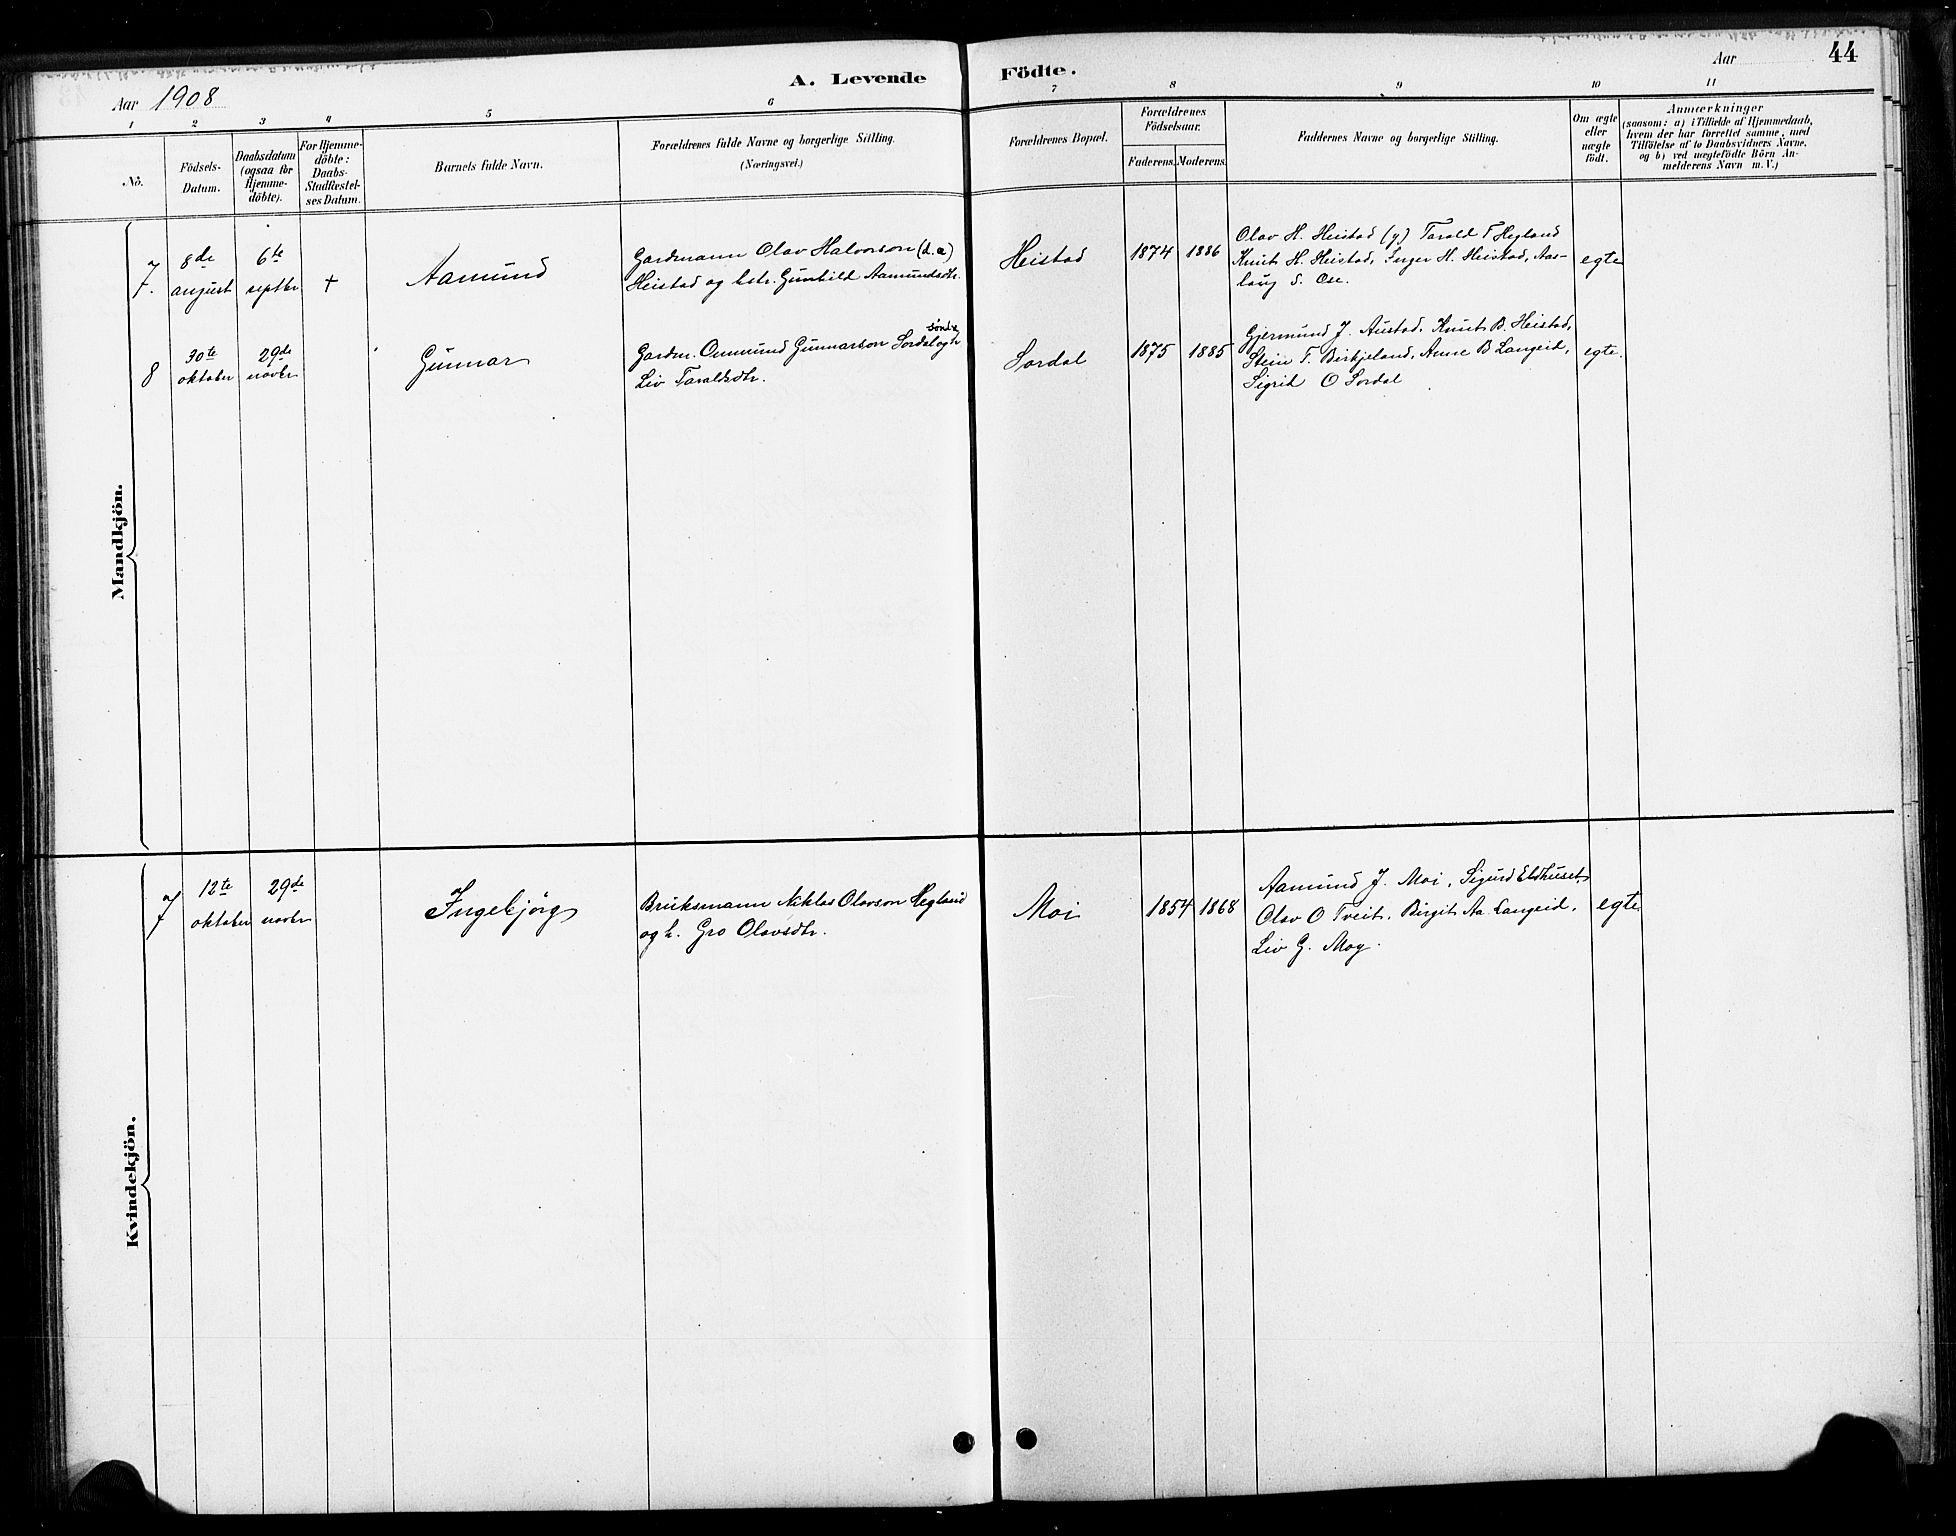 Aar 1908
A. Levende Födte.
Aar
44
1 2 3 4 5 6 7 8 9 10 11
Nô.
Födsels-
Datum.
Daabsdatum
(ogsaa for
Hjemme-
döbte).
For Hjemme-
döbte:
Daabs-
Stadfæstel-
ses Datum.
Barnets fulde Navn.
Forældrenes fulde Navne og borgerlige Stilling.
(Næringsvei.)
Forældrenes Bopæl.
Forældrenes
Födselsaar.
Faderens. Moderens.
Faddernes Navne og borgerlige Stilling.
Om ægte
eller
uægte
födt.
Anmærkninger
(saasom: a) i Tilfælde af Hjemmedaab,
hvem der har forrettet samme, med
Tilföielse af to Daabsvidners Navne,
og b) ved uægtefödte Börn An-
melderens Navn m.V.)
Mandkjön.
7.
8de
august
6te
septbr
+
Aamund
Gardmann Olav Halvorson (d.a)
Heistad og hstr. Gunhild Aamundsdtr.
Heistad
1874 1886
Olav H. Heistad (y) Tarald T Hegland
Knut H. Heistad, Inger H. Heistad, Aas-
laug S. Ose.
egte
8
30te
oktober
29de
novbr
Gunnar
søndre
Gardm. Onmund Gunnarson Sordal og h
Liv Taraldsdtr.
Sordal
1875 1885
Gjermund J. Austad, Knut B. Heistad,
Stein T. Birkjeland, Anne B Langeid,
Sigrid O Sordal
egte.
Kvindekjön.
7
12te
oktober
29de
novbr
Ingebjörg
Bruksmann Niklas Olavson Hegland
og h. Gro Olavsdtr.
Moi
1854 1868
Aamund J. Moi, Sigurd Eldhuset,
Olav O Tveit, Birgit Aa. Langeid,
Liv G. Moy.
egte